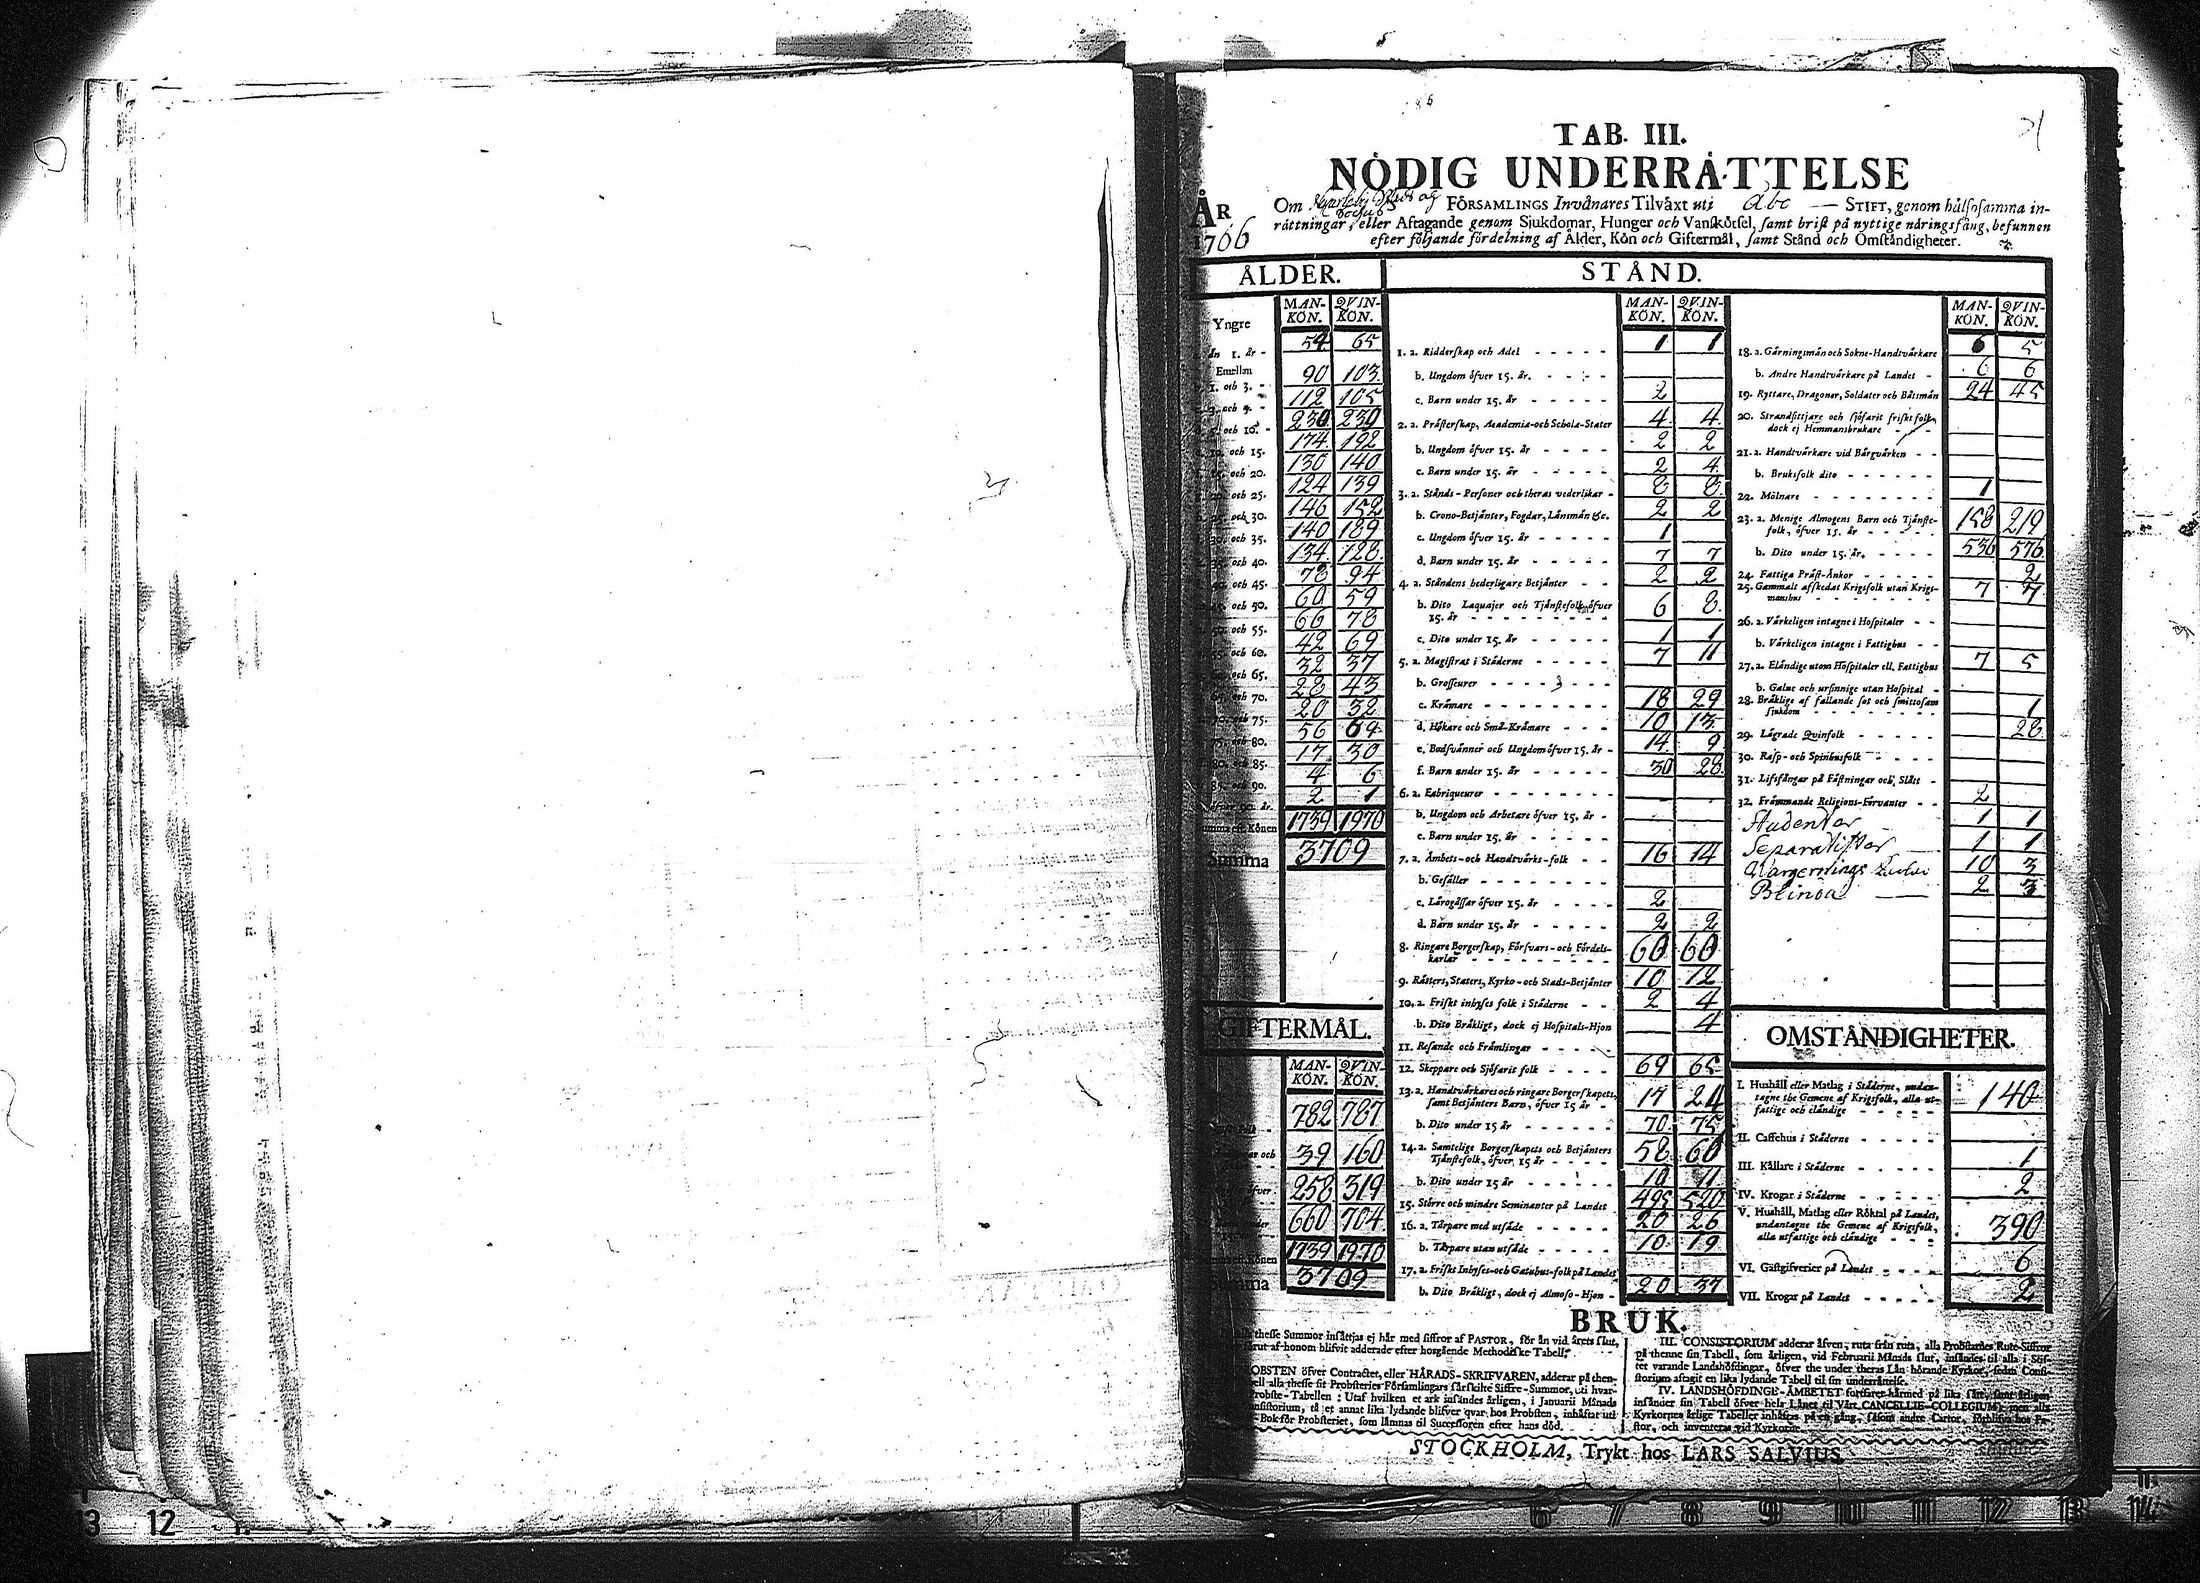 TAB. III.
NÖDIG UNDERRÅTTELSE
ÅR 1766
Om FÖRSAMLINGS Invånares Tilväxt uti Åbo — STIFT, genom hälsosamma in-
rättningar, eller Aftagande genom Sjukdomar, Hunger och Vanskötsel, samt brist på nyttige näringsfång, befunnen
efter följande fördelning af Ålder, Kön och Giftermål, samt Stånd och Omständigheter.
ÅLDER.
MAN-KÖN. QVIN-KÖN.
Yngre
än 1. år - 54 65
Emellan
1. och 3. - 90 103
3. och 5. - 112 105
5. och 10. - 230 239
10. och 15. 174 192
15. och 20. 130 140
20. och 25. 124 139
25. och 30. 146 152
30. och 35. 140 189
35. och 40. 134 128
40. och 45. 78 94
45. och 50. 60 59
50. och 55. 66 78
55. och 60. 42 69
60. och 65. 32 37
65. och 70. 28 43
70. och 75. 20 32
75. och 80. 56 69
80. och 85. 17 30
85. och 90. 4 6
öfver 90. år. 2 1
Summa eft. Könen 1739 1970
Summa 3709
GIFTERMÅL.
MAN-KÖN. QVIN-KÖN.
782 787
och 39 160
öfver 258 319
660 704
eft. Könen 1739 1970
Summa 3709
STÅND.
MAN-KÖN. QVIN-KÖN.
1. a. Ridderskap och Adel - - - - - 1 1
b. Ungdom öfver 15. år. - - - -
c. Barn under 15. år - - - - - 2
2. a. Prästerskap, Academia-och Schola-Stater 4 4
b. Ungdom öfver 15. år - - - - 2 2
c. Barn under 15. år - - - - - 2 4
3. a. Stånds-Personer och theras vederlikar - 8 8
b. Crono-Betjänter, Fogdar, Länsmän &c. 2 2
c. Ungdom öfver 15. år - - - - 1
d. Barn under 15. år - - - - - 7 7
4. a. Ståndens hederligare Betjänter - - 2 2
b. Dito Laquajer och Tjänstefolk öfver
15. år - - - - - - - - - 6 8
c. Dito under 15. år - - - - - 1 1
5. a. Magistrat i Städerne - - - - - 7 11
b. Grosseurer - - - - - - - -
c. Krämare - - - - - - - - 18 29
d. Hökare och Små-Krämare - - - 10 13
e. Bodsvänner och Ungdom öfver 15. år - 14 9
f. Barn under 15. år - - - - - 30 28
6. a. Fabriqueurer - - - - - - - -
b. Ungdom och Arbetare öfver 15. år -
c. Barn under 15. år - - - - -
7. a. Ämbets-och Handtvärks-folk - - 16 14
b. Gesäller - - - - - - - -
c. Lärogåssar öfver 15. år - - - - 2
d. Barn under 15. år - - - - - 2 2
8. Ringare Borgerskap, Försvars-och Fördels-
karlar - - - - - - - - - 60 60
9. Rätters, Staters, Kyrko-och Stads-Betjänter 10 12
10. a. Friskt inhyses folk i Städerne - - 2 4
b. Dito Bräkligt, dock ej Hospitals-Hjon 4
11. Resande och Främlingar - - - - -
12. Skeppare och Sjöfarit folk - - - - 69 65
13. a. Handtvärkares och ringare Borgerskapets,
samt Betjänters Barn, öfver 15 år - 17 24
b. Dito under 15 år - - - - - - 70 75
14. a. Samtelige Borgerskapets och Betjänters
Tjänstefolk, öfver 15 år - - - - 58 60
b. Dito under 15 år - - - - - - 10 11
15. Större och mindre Hemmanster på Landet 495 520
16. a. Tårpare med utsäde - - - - - 20 26
b. Tårpare utan utsäde - - - - - 10 19
17. a. Friskt Inhyses-och Gatuhus-folk på Landet
b. Dito Bräkligt, dock ej Almoso-Hjon - 20 37
MAN-KÖN. QVIN-KÖN.
18. a. Gärningsmän och Sokne-Handtvärkare 6 5
b. Andre Handtvärkare på Landet - 6 6
19. Ryttare, Dragoner, Soldater och Båtsmän 24 45
20. Strandsittjare och sjöfarit friskt folk,
dock ej Hemmansbrukare - -
21. a. Handtvärkare vid Bärgvärken - -
b. Bruksfolk dito - - - - - -
22. Mölnare - - - - - - - - 1
23. a. Menige Almogens Barn och Tjänste-
folk, öfver 15. år - - - - - 158 219
b. Dito under 15. år. - - - - - 536 576
24. Fattiga Präst-Änkor - - - - - 2
25. Gammalt afskedat Krigsfolk utan Krigs-
manshus - - - - - - - - 7 7
26. a. Värkeligen intagne i Hospitaler - -
b. Värkeligen intagne i Fattighus - -
27. a. Eländige utom Hospitaler ell. Fattighus 7 5
b. Galne och ursinnige utan Hospital -
28. Bräklige af fallande sot och smittosam
sjukdom - - - - - - - - 1
29. Lägrade Qvinfolk - - - - - 28
30. Rasp-och Spinhusfolk - - - -
31. Lifsfångar på Fästningar och Slått -
32. Främmande Religions-Förvanter - - 2
Studenter 1 1
Separatister — 1 1
10 3
Blinda — 2 3
OMSTÄNDIGHETER.
I. Hushåll eller Matlag i Städerne, undan-
tagne the Gemene af Krigsfolk, alla ut-
fattige och eländige - - - - - 140
II. Caffehus i Städerne - - - - -
III. Källare i Städerne - - - - - 1
IV. Krogar i Städerne - - - - - 2
V. Hushåll, Matlag eller Röktal på Landet,
undantagne the Gemene af Krigsfolk,
alla utfattige och eländige - - - 390
VI. Gästgifverier på Landet - - - - 6
VII. Krogar på Landet - - - - - 2
BRUK.
thesse Summor insättjas ej här med siffror af PASTOR, för än vid årets slut,
förut af honom blifvit adderade efter hosgående Methodiske Tabell.
OBSTEN öfver Contractet, eller HÄRADS-SKRIFVAREN, adderar på then-
ell alla thesse sit Probsteries Församlingars särskilte Siffre-Summor, uti hvar-
robste-Tabellen: Utaf hvilken et ark insändes årligen, i Januarii Månads
nsistorium, tå et annat lika lydande blifver qvar hos Probsten, inhäftat uti
Bok för Probsteriet, som lämnas til Successoren efter hans död.
III. CONSISTORIUM adderar äfven, ruta från ruta, alla Probstiernes Rute-Siffror
på thenne sin Tabell, som årligen, vid Februarii Månads slut, insändes til alla i Stif-
tet varande Landshöfdingar, öfver the under theras Län hörande Kyrkor, sedan Consi-
storium aftagit en lika lydande Tabell til sin underrättelse.
IV. LANDSHÖFDINGE-ÄMBETET fortfarer härmed på lika sätt, samt årligen
insänder sin Tabell öfver hela Länet til Vårt CANCELLIE-COLLEGIUM; men alla
Kyrkornes årlige Tabeller inhäftas på en gång, såsom andre Cartor, förblifva hos Pa-
stor, och inventeras vid Kyrkorne.
STOCKHOLM, Trykt hos LARS SALVIUS.
3 12
6 7 8 9 10 11 12 13 14